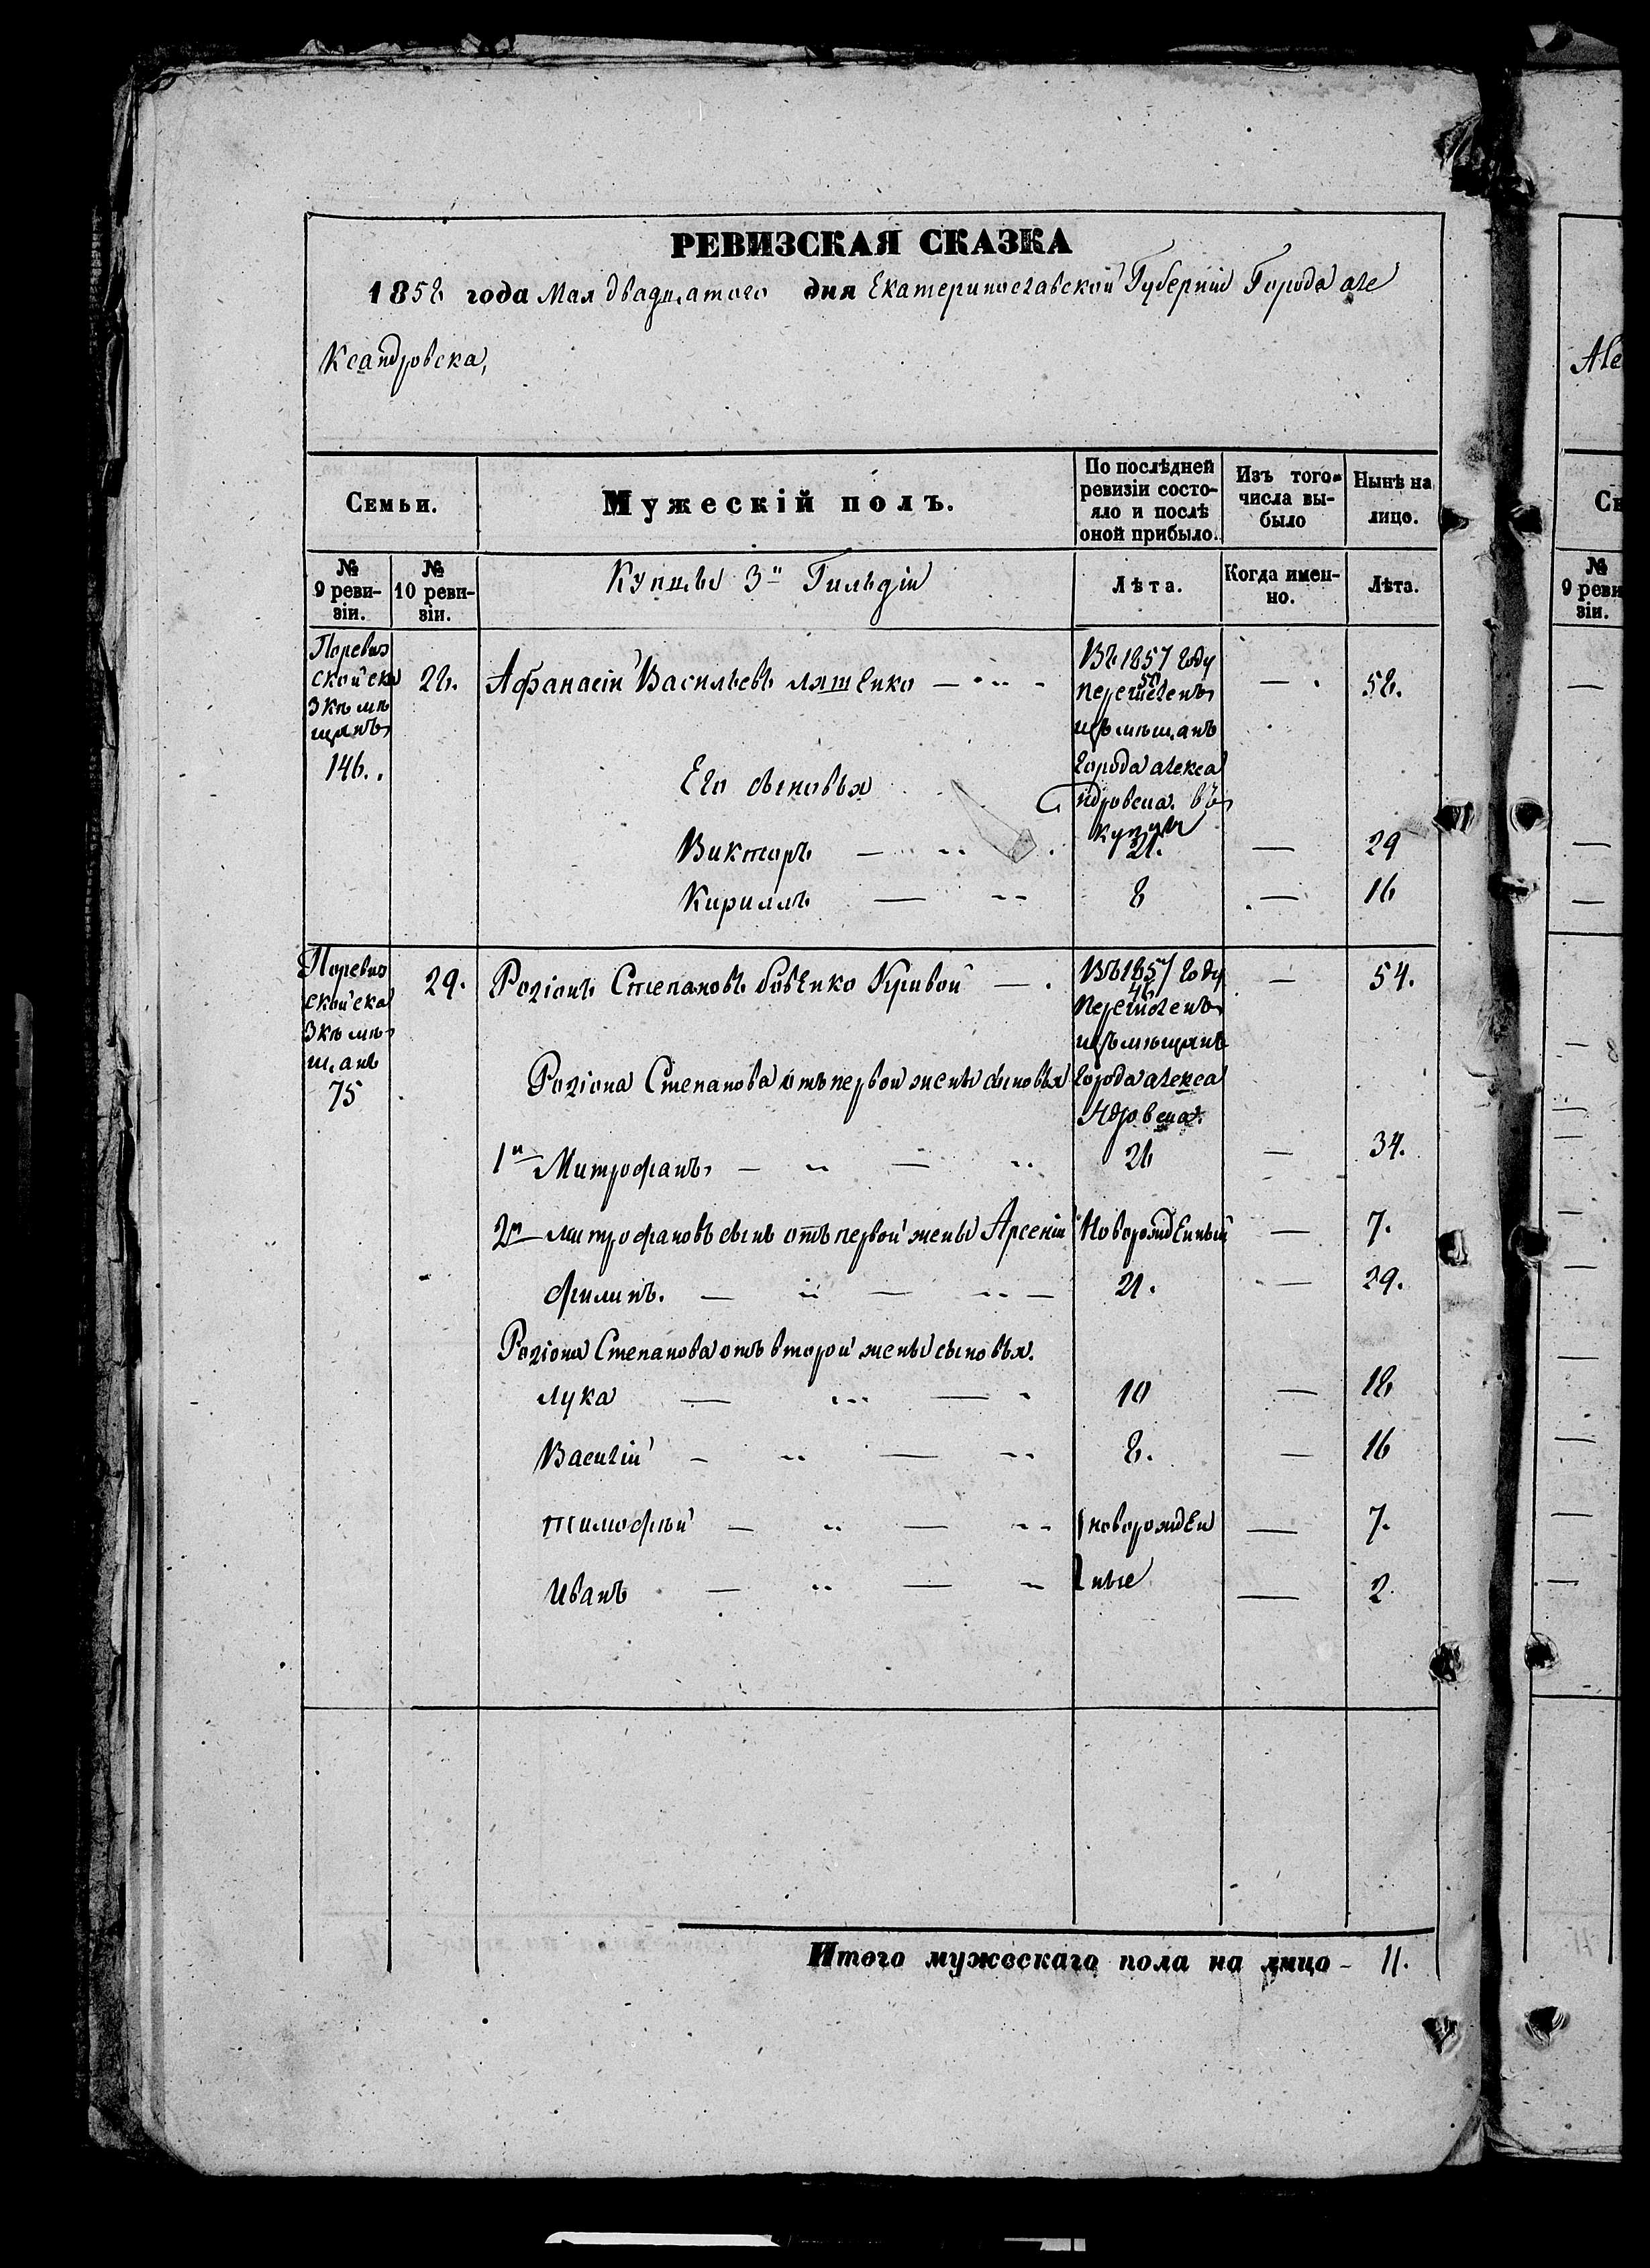 РЕВИЗСКАЯ СКАЗКА
1858 года Мая двадцатого дня Екатеринославской Губерніи Города Але
ксандровска,
Семьи.
Мужескій полъ.
По послѣдней ревизіи состо-
яло и послѣ
оной прибыло.
Изъ того
числа вы-
было
Нынѣ на
лицо.
№
9 реви-
зіи.
№
10 реви-
зіи.
Купцы 3й Гильдіи
Лѣта.
Когда имен-
но.
Лѣта.
Поревиз
ской ска
зкѣ мѣ
щанъ
146.
28.
Афанасій Васильевъ Ляшенко
Въ 1857 году
50
перечисленъ
изъ мѣщанъ
города Алекса
ндровска въ
купцы
—
58.
Его сыновья
Викторъ — 21. — 29
Кириллъ — 8 — 16
Поревиз
ской ска
зкѣ мѣ
щанъ
75
29.
Родіонъ Степановъ Бовенко Кривой —
Въ 1857 году
46
перечисленъ
изъ мѣщанъ
города Алекса
ндровска.
—
54.
Родіона Степанова отъ первой жены сыновья
1й Митрофанъ — 26 — 34.
2й Митрофановъ сынъ отъ первой жены Арсеній Новорожденный — 7.
Филипъ. — 21. — 29.
Родіона Степанова отъ второй жены сыновья.
Лука — 10 — 18
Василій — 8. — 16
Тимофѣй — новорожден — 7.
Иванъ — ные — 2.
Итого мужескаго пола на лицо - 11.
Але
Се
№
9 реви
зіи.